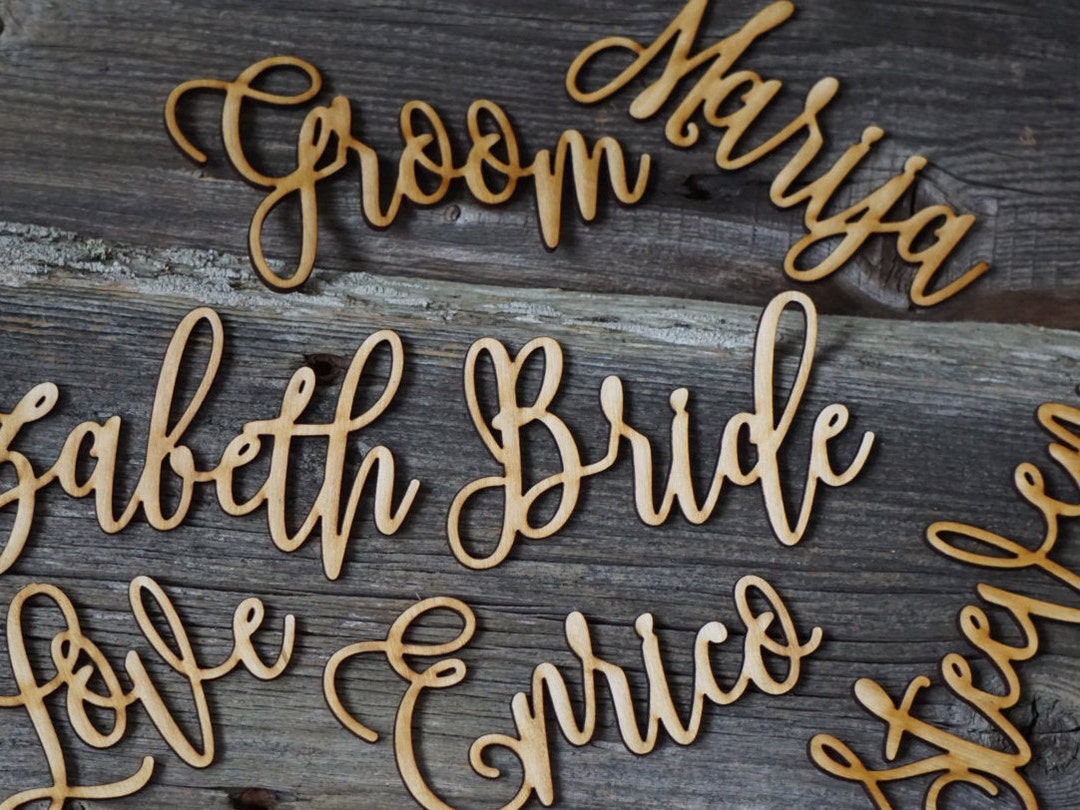 Groom
Marija
zabeth
Bride
Love
Enrico
Stephen